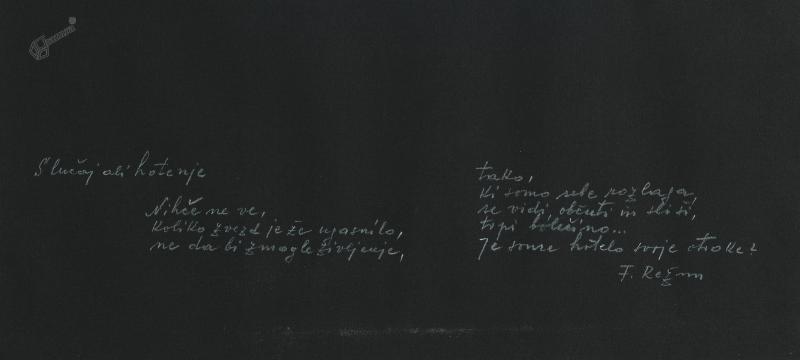 Slučaj ali hotenje
Nihče ne ve,
koliko zvezd je že ugasnilo,
ne da bi zmogle življenje,
tako,
ki samo sebe razlaga,
se vidi, občuti in sliši,
trpi bolečino...
Je sonce hotelo svoje otroke?
F. Režun